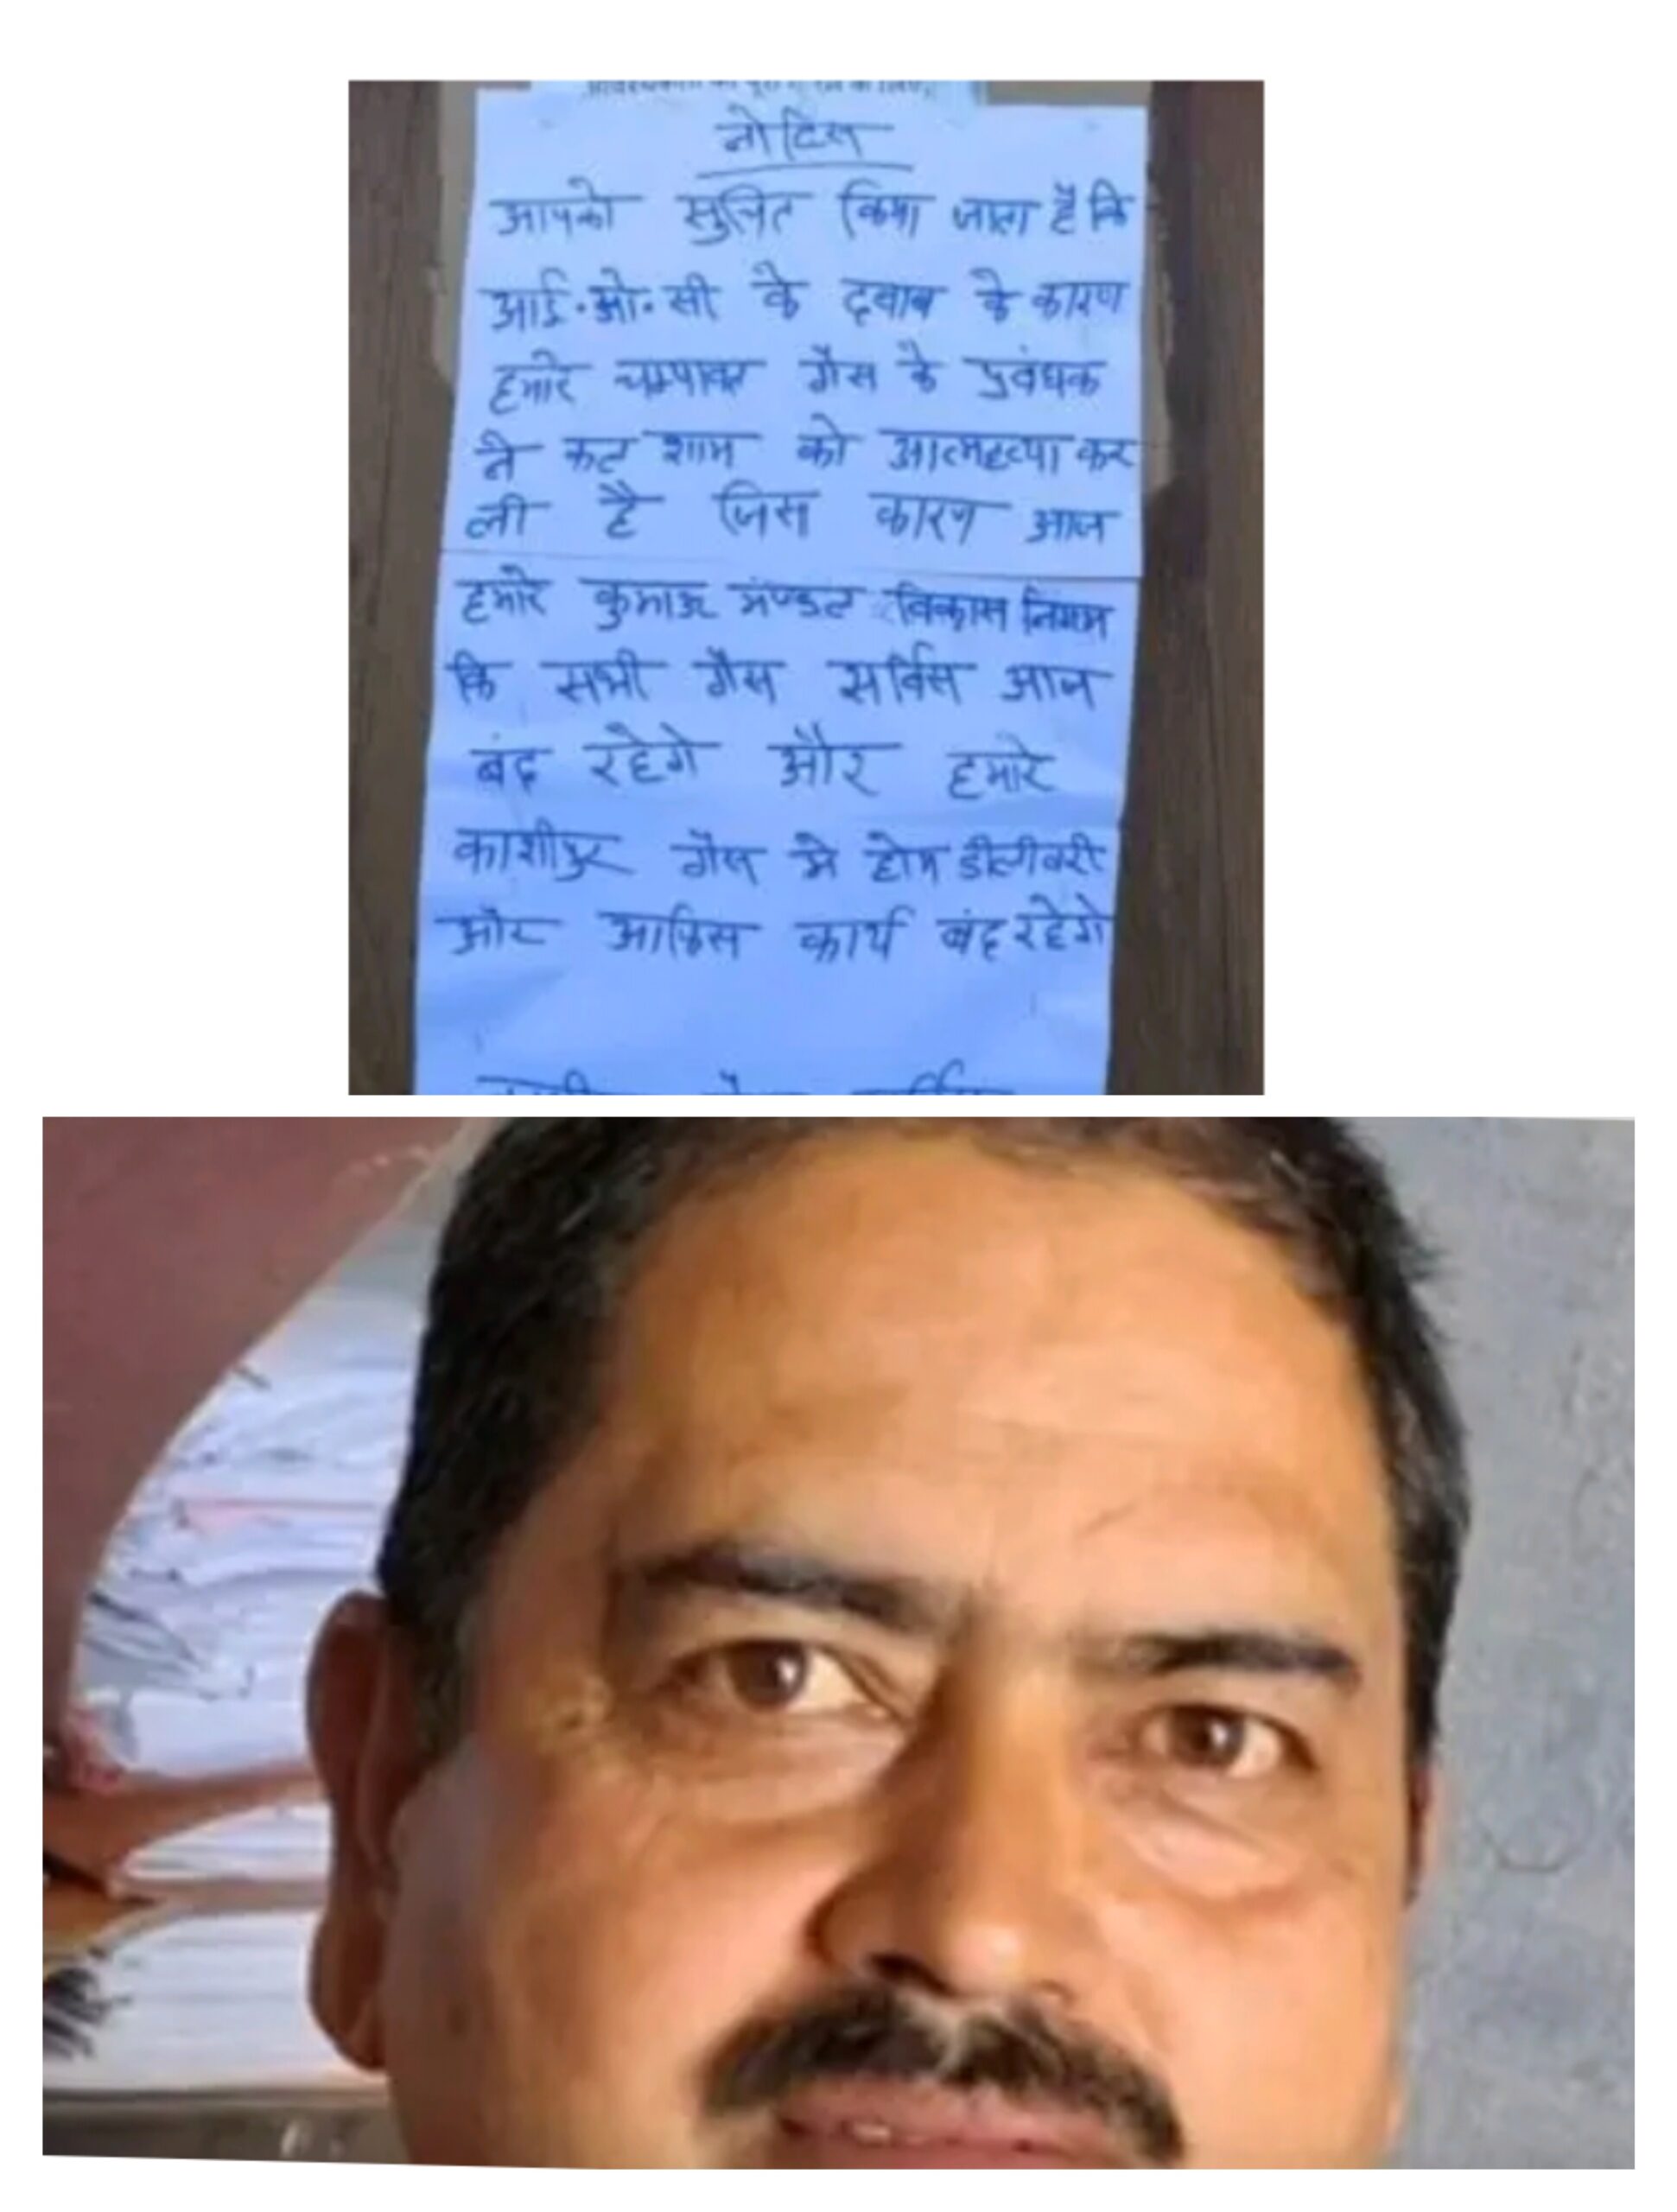 नोटिस
आपको सुचित किया जाता है कि
आई.ओ.सी के दबाव के कारण
हमारे चम्पावत गैस के प्रबंधक
ने कल शाम को आत्महत्या कर
ली है जिस कारण आज
हमारे कुमाऊ मण्डल विकास निगम
कि सभी गैस सर्विस आज
बंद रहेगे और हमारे
काशीपुर गैस मे होम डीलीवरी
और आफिस कार्य बंद रहेगे